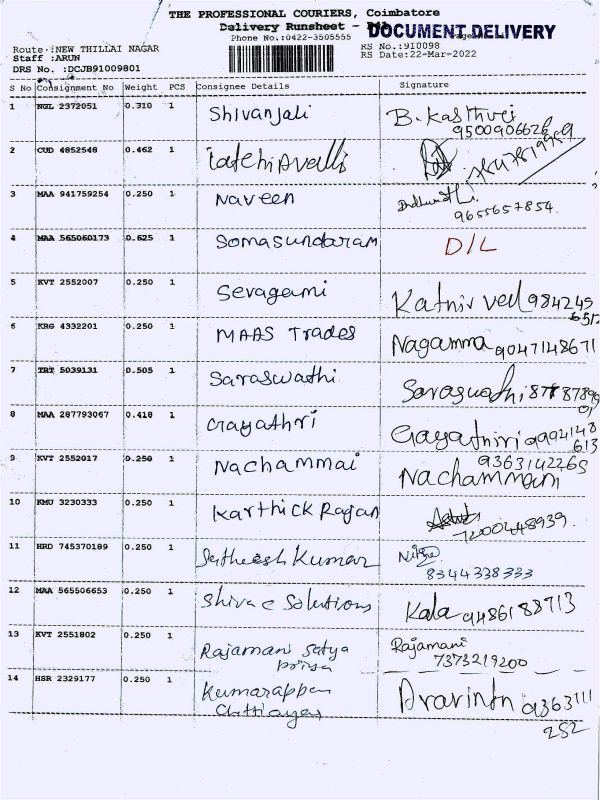 THE PROFESSIONAL COURIERS, Coimbatore
Delivery Runsheet - DOCUMENT DELIVERY
Phone No.:0422-3505555
Route :NEW THILLAI NAGAR RS No.:910098
Staff :ARUN RS Date:22-Mar-2022
DRS No. :DCJB91009801
S No Consignment No Weight PCS Consignee Details Signature
1 NGL 2372051 0.310 1 Shivanjali B. Kasthuri
9500906626
2 CUD 4852548 0.462 1
3 MAA 941759254 0.250 1 Naveen
9655657854
4 MAA 565060173 0.625 1 Somasundaram D/L
5 KVT 2552007 0.250 1 Sevagami Kathir vel 984245
6512
6 KRG 4332201 0.250 1 MAAS Trades Nagamma 9047148671
7 TRT 5039131 0.505 1 Saraswathi Saraswathi
8 MAA 287793067 0.418 1 Gayathri Gayathri 9994148
613
9 KVT 2552017 0.250 1 Nachammai 9363142265
Nachammai
10 KMU 3230333 0.250 1 Karthick Rajan
7200448939
11 HRD 745370189 0.250 1 Satheesh Kumar
8344338333
12 MAA 565506653 0.250 1 Shiva e Solutions Kala 9486188713
13 KVT 2551802 0.250 1 Rajamani Satya Rajamani
7373219200
14 HSR 2329177 0.250 1 Kumarappan Aravinth 9363111
Chettiayar 252